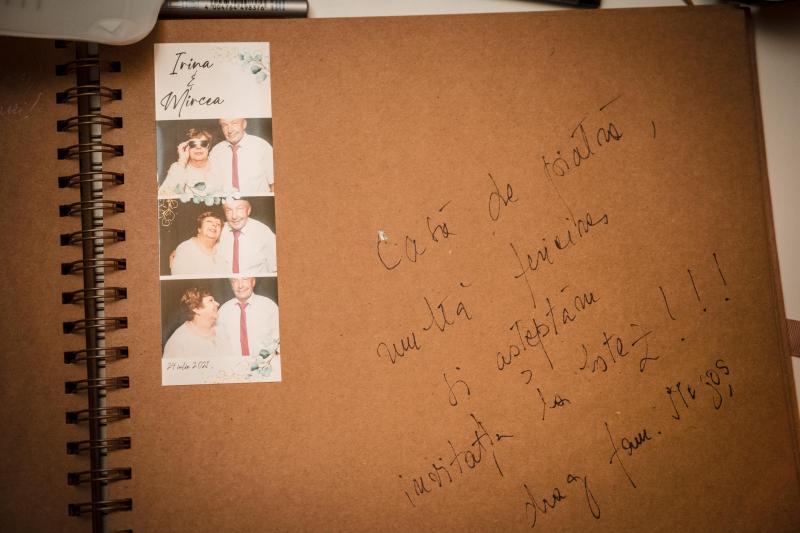 4 004764 498376
Irina
&
Mircea
24 iulie 2021
Casă de piatră,
multă fericire
și așteptăm
invitația la botez!!!
drag fam.